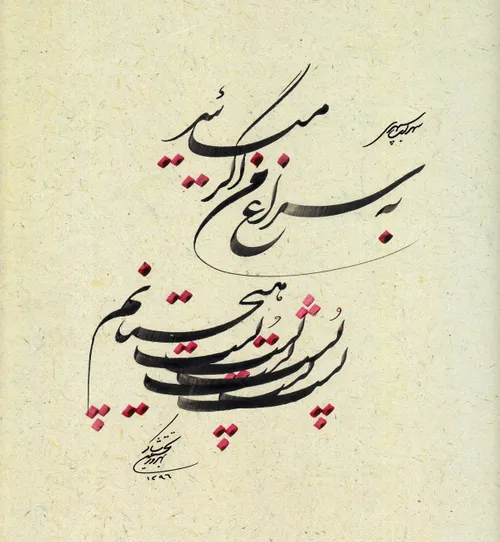 سهراب سپهری
به سراغ من اگر میائید
پشت هیچستانم
۱۳۹۶